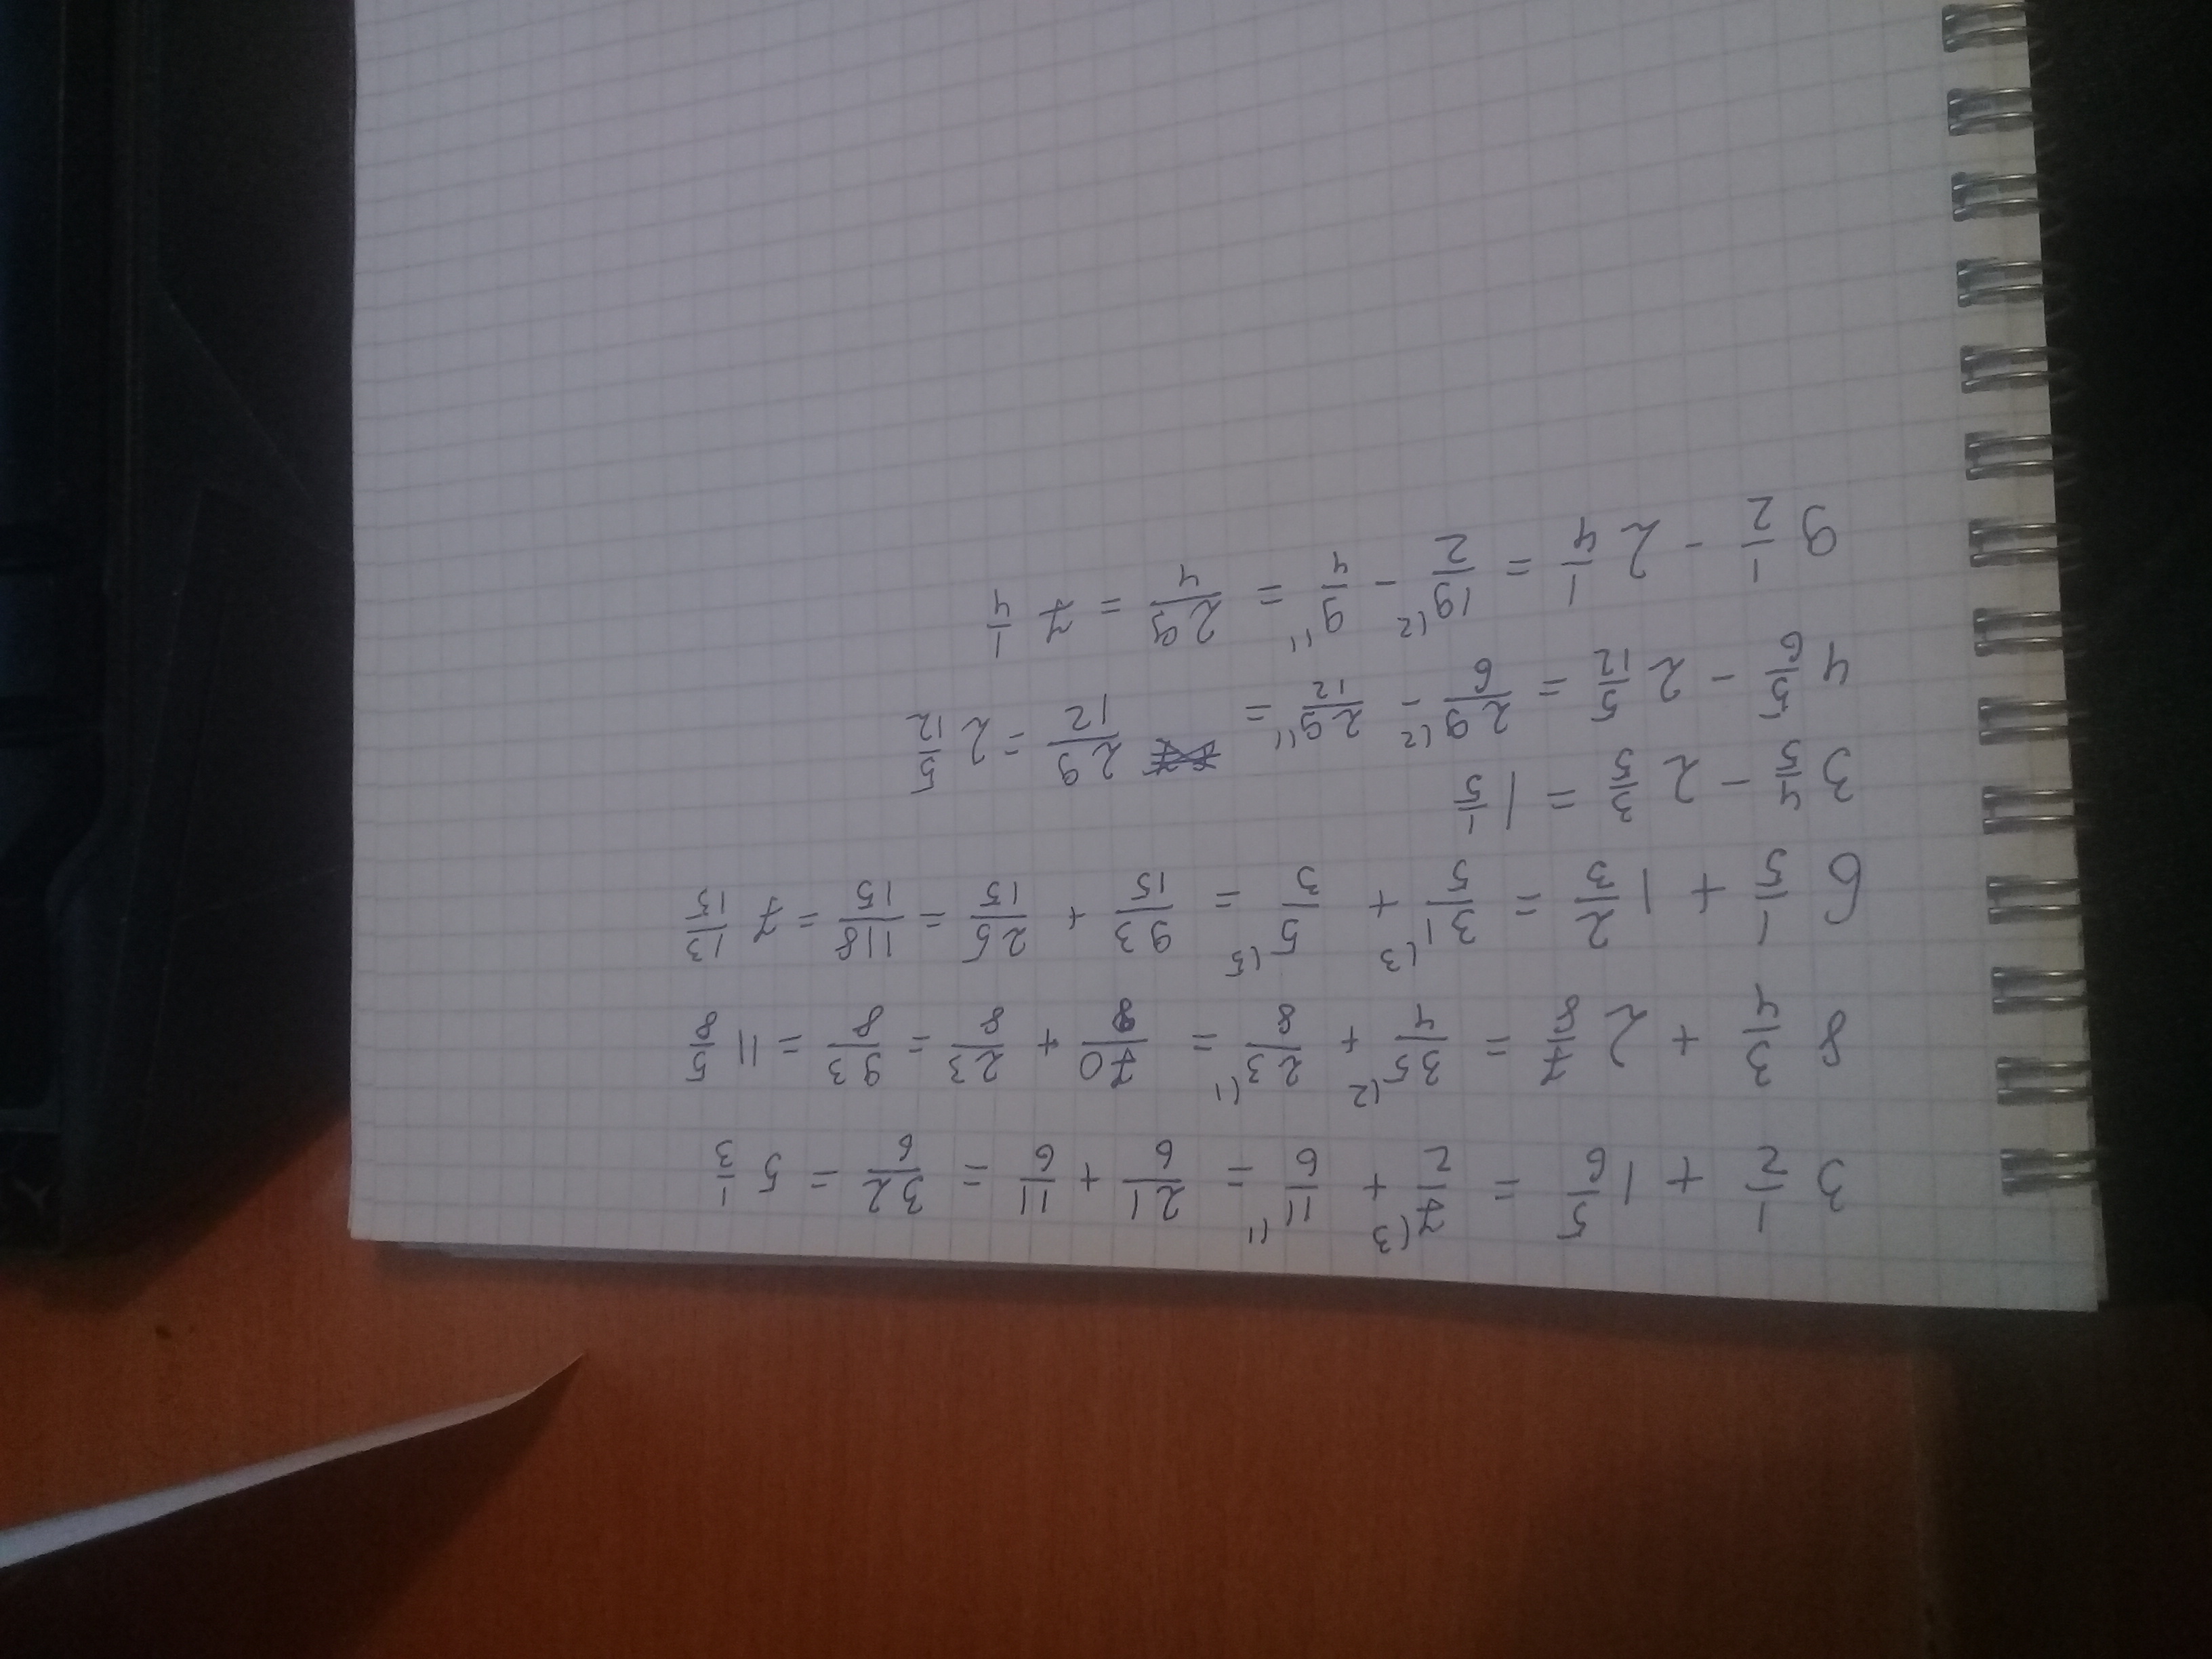 3 1/2 + 1 5/6 = 7/2 (3 + 11/6 (1 = 21/6 + 11/6 = 32/6 = 5 1/3
8 3/4 + 2 7/8 = 35/4 (2 + 23/8 (1 = 70/8 + 23/8 = 93/8 = 11 5/8
6 1/5 + 1 2/3 = 31/5 (3 + 5/3 (5 = 93/15 + 25/15 = 118/15 = 7 13/15
3 4/5 - 2 3/5 = 1 1/5
4 5/6 - 2 5/12 = 29/6 (2 - 29/12 (1 = 29/12 = 2 5/12
9 1/2 - 2 1/4 = 19/2 (2 - 9/4 (1 = 29/4 = 7 1/4